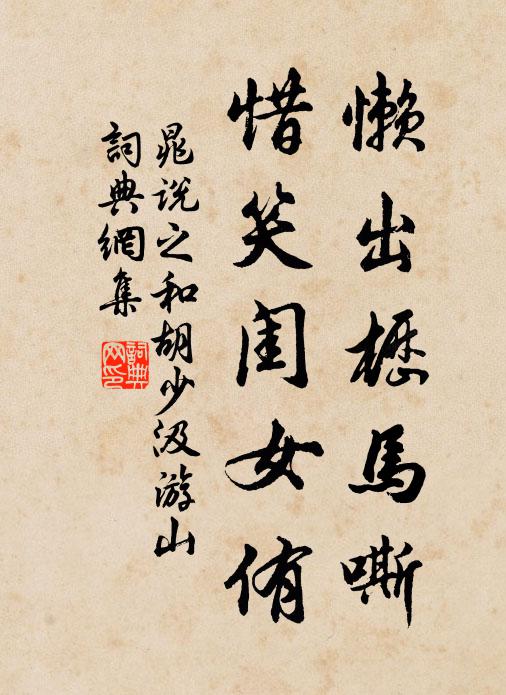 懒出櫪馬嘶
惜笑闺女侑
晁说之和胡少汲游山
詞典網集
詞典
网印